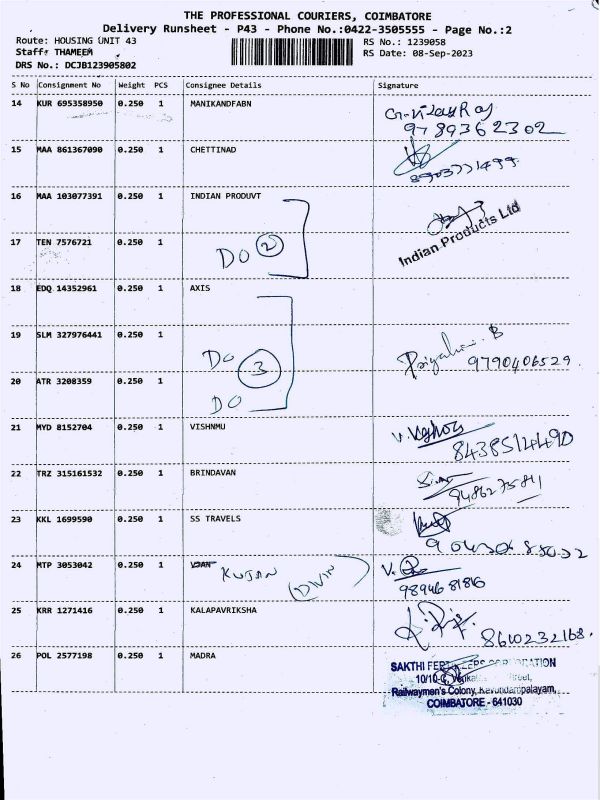 THE PROFESSIONAL COURIERS, COIMBATORE
Delivery Runsheet - P43 - Phone No.:0422-3505555 - Page No.:2
Route: HOUSING UNIT 43
RS No.: 1239058
Staff: THAMEEM
RS Date: 08-Sep-2023
DRS No.: DCJB123905802
S No Consignment No Weight PCS Consignee Details Signature
14 KUR 695358950 0.250 1 MANIKANDFABN
9789362302
15 MAA 861367090 0.250 1 CHETTINAD
8903771499
16 MAA 103077391 0.250 1 INDIAN PRODUVT
Indian Products Ltd
17 TEN 7576721 0.250 1 DO 2
18 EDQ 14352961 0.250 1 AXIS
19 SLM 327976441 0.250 1 DO 3
B
9790406529
20 ATR 3208359 0.250 1 DO
21 MYD 8152704 0.250 1 VISHNMU
8438514490
22 TRZ 315161532 0.250 1 BRINDAVAN
9486275811
23 KKL 1699590 0.250 1 SS TRAVELS
24 MTP 3053042 0.250 1 KUJAN (DIVIN)
9894681816
25 KRR 1271416 0.250 1 KALAPAVRIKSHA
8610232168.
26 POL 2577198 0.250 1 MADRA
SAKTHI FERTILIZERS CORPORATION
10/10-C, Street,
Railwaymen's Colony, Kavundampalayam,
COIMBATORE - 641030